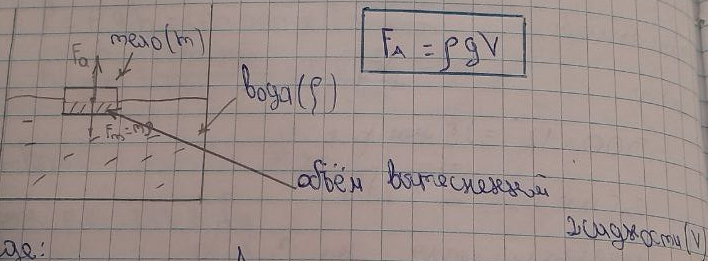 Fа тело(m)
FА = ρgV
вода(ρ)
Fт=mg
объём вытесненной
жидкости(V)
где: